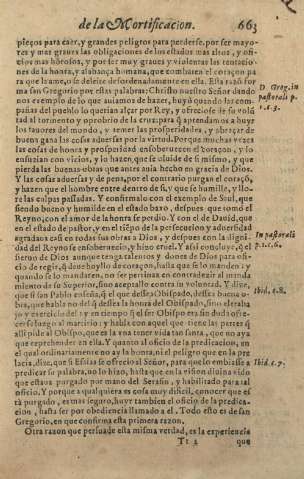 de la Mortificacion. 663
pieços para caer, y grandes peligros para perderse, por ser mayo-
res y mas graues las obligaciones de los estados mas altos, y ofi-
cios mas hōrosos, y por ser muy graues y violentas las tentacio-
nes de la honra, y alabança humana, que combaten el coraçon pa
ra que la ame, o se deleite desordenadamente en ella. Esta razō for
ma san Gregorio por estas palabras: Christo nuestro Señor dando
nos exemplo de lo que auiamos de hazer, huyó quando las com-
pañas del pueblo lo querian alçar por Rey, y ofreciose de su volū
tad al tormento y oprobrio de la cruz: para q̄ aprendamos a huyr
los fauores del mundo, y temer las prosperidades, y abraçar de
buena gana las cosas aduersas por la virtud. Porque muchas vezes
las cosas de honra y prosperidad ensoberuecen el coraçon, y lo
ensuzian con vicios, y lo hazen que se oluide de si mismo, y que
pierda las buenas obras que antes auia hecho en gracia de Dios.
Y las cosas aduersas y de pena, por el contrario purgan el coraçō,
y hazen que el hombre entre dentro de si, y que se humille, y llo-
re las culpas passadas. Y confirmalo con el exemplo de Saul, que
siendo bueno y humilde en el estado baxo, despues que tomó el
Reyno, con el amor de la honra se perdio. Y con el de Dauid, que
en el estado de pastor, y en el tiēpo de la persecucion y aduersidad
agradaua a Dios, y despues con la digni-
dad del Reyno se ensoberuecio, y hizo cruel. Y assi concluye, q̄ si
fueron de Dios aunque tenga talentos y dones de Dios para ofi-
cio de regir, q̄ deue huyllo de coraçō, hasta que se lo manden: y
quando se lo mandaren, no ser pertinaz en contradezir al manda-
miento de su Superior, sino aceptallo contra su voluntad. Y dize,
que si san Pablo enseña, q̄ el que dessea Obispado, dessea buena o-
bra, que habla no del q̄ dessea la honra del Obispado, sino el traba-
jo y exercicio del: y en tiempo q̄ el ser Obispo era sin duda ofre-
cerse luego al martirio: y habla con aquel que tiene las partes q̄
alli pide al Obispo, que es la vna tener vida tan santa, que no aya
que reprehender en ella. Y quanto al oficio de la predicacion, en
el qual ordinariamente no ay la honra, ni el peligro que en la pre
lacia, dize, que si Esaias se ofrecio al Señor, para que lo embiasse a
predicar su palabra, no lo hizo, hasta que en la vision diuina vido
que estaua purgado por mano del Serafin, y habilitado para tal
oficio. Y porque a qualquiera es cosa muy dificil, conocer que es
tá purgado, es mas seguro, huyr tambien el oficio de la predica-
cion, hasta ser por obediencia llamado a el. Todo esto es de san
Gregorio, en que confirma esta primera razon.
Otra razon que persuade esta misma verdad, es la experiencia
Tt 3 que
D. Greg. in
pastorali p.
1. c. 3.
In pastorali
p. 1. c. 6.
Ibid. c. 8.
Ibid. c. 7.